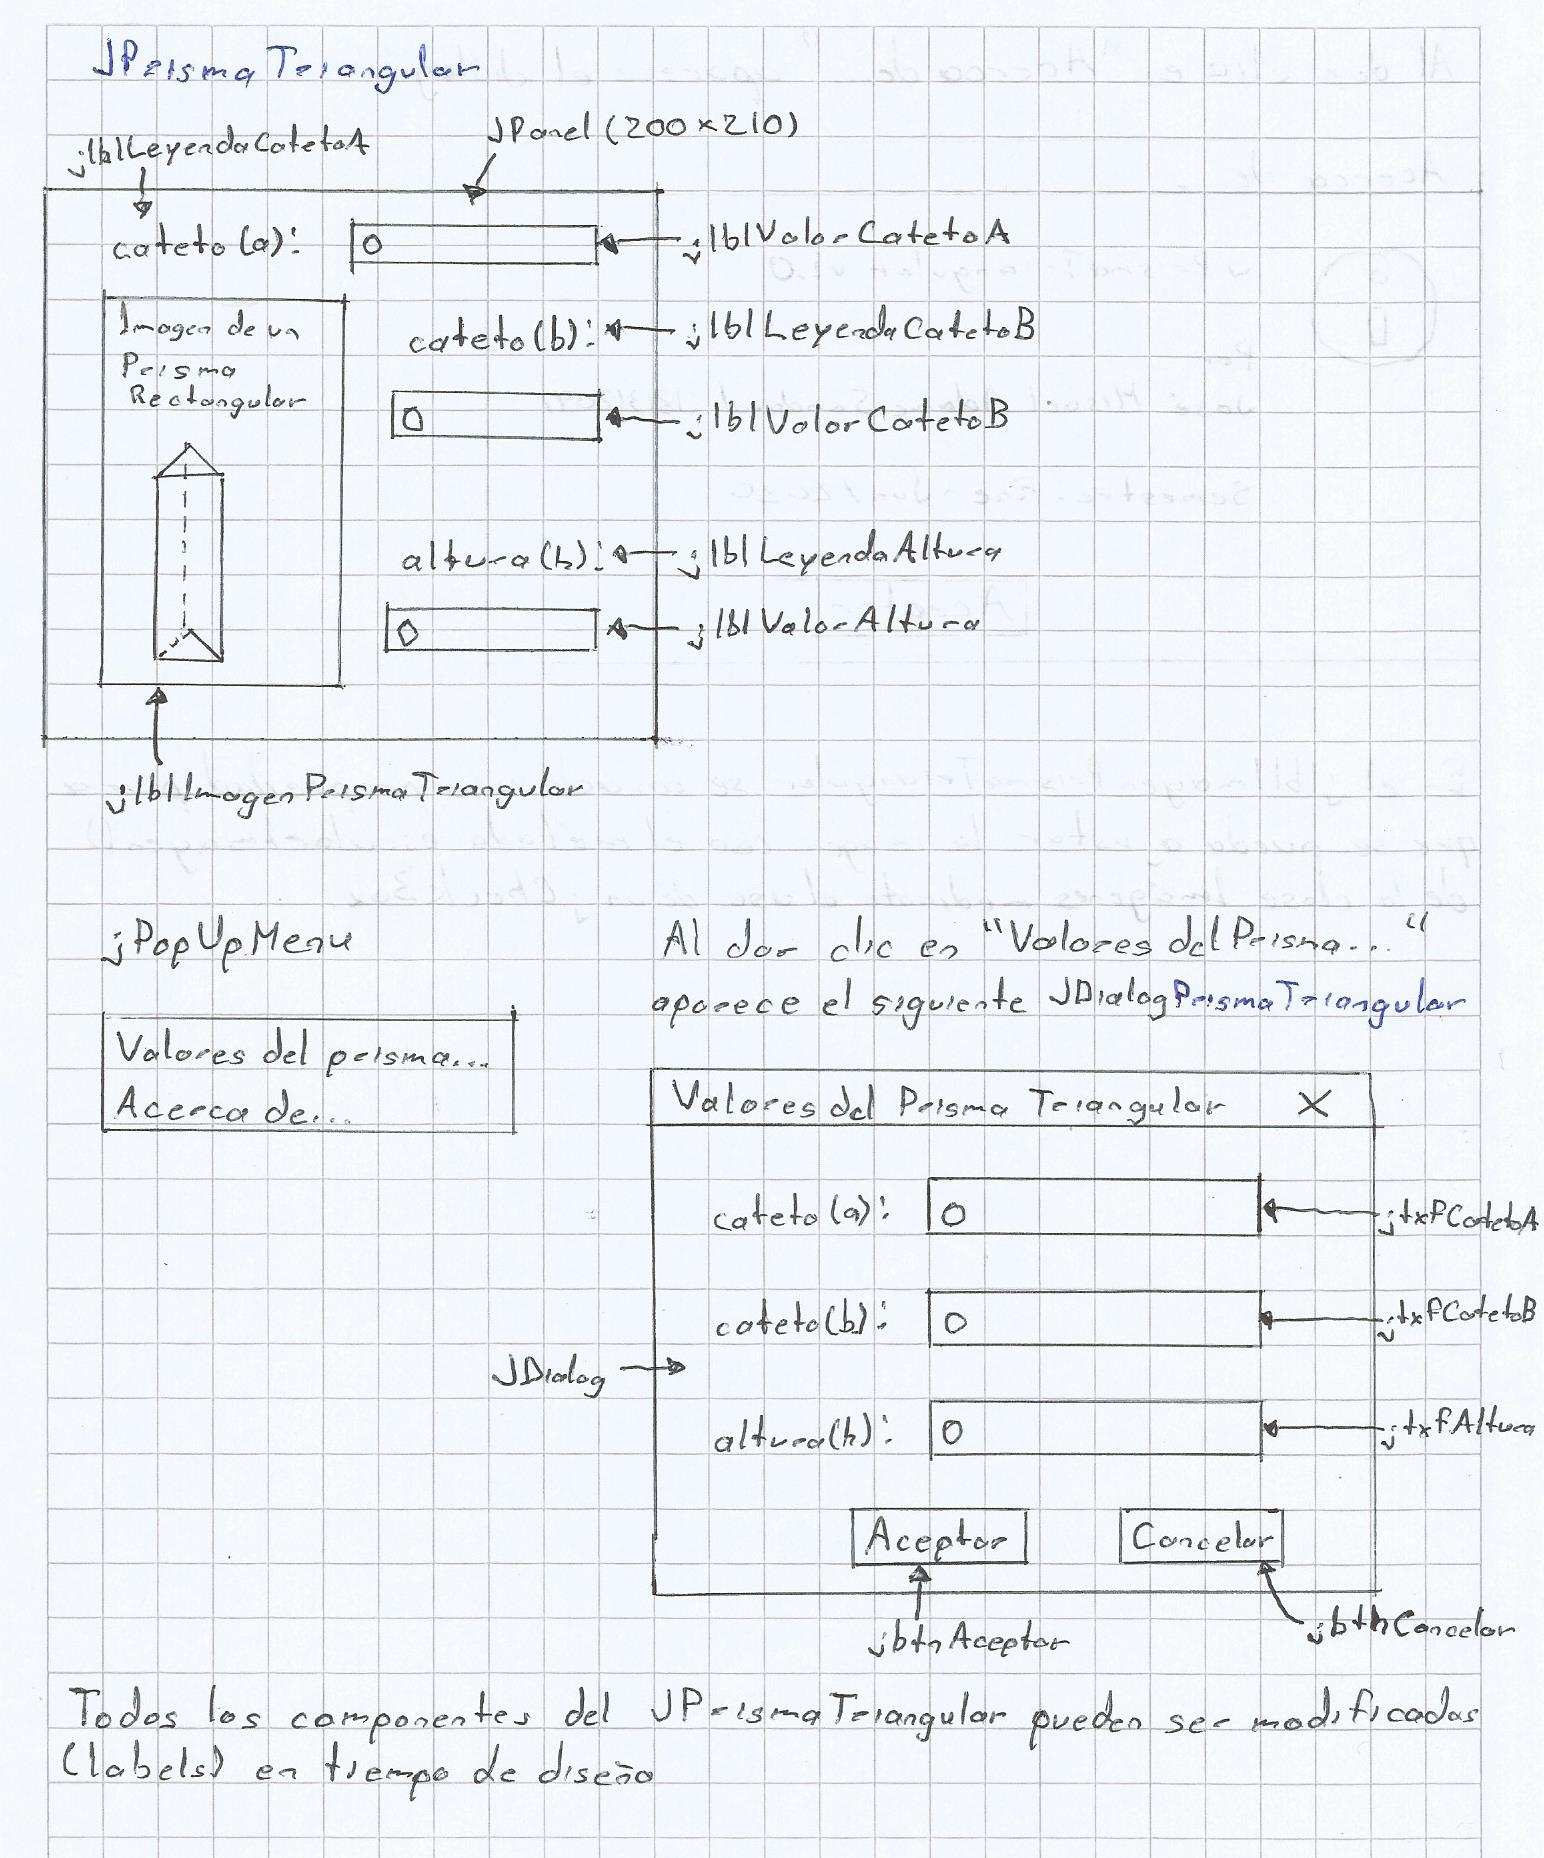 JPrismaTriangular
JPanel (200x210)
jlblLeyendaCatetoA
cateto (a): 0
jlblValorCatetoA
Imagen de un
Prisma
Rectangular
cateto (b):
jlblLeyendaCatetoB
0
jlblValorCatetoB
altura (h):
jlblLeyendaAltura
0
jlblValorAltura
jlblImagenPrismaTriangular
jPopUpMenu
Valores del prisma...
Acerca de...
Al dar clic en "Valores del Prisma..."
aparece el siguiente JDialogPrismaTriangular
Valores del Prisma Triangular X
cateto (a): 0
jtxfCatetoA
cateto (b): 0
jtxfCatetoB
JDialog
altura (h): 0
jtxfAltura
Aceptar Cancelar
jbtnAceptar
jbtnCancelar
Todos los componentes del JPrismaTriangular pueden ser modificados
(labels) en tiempo de diseño